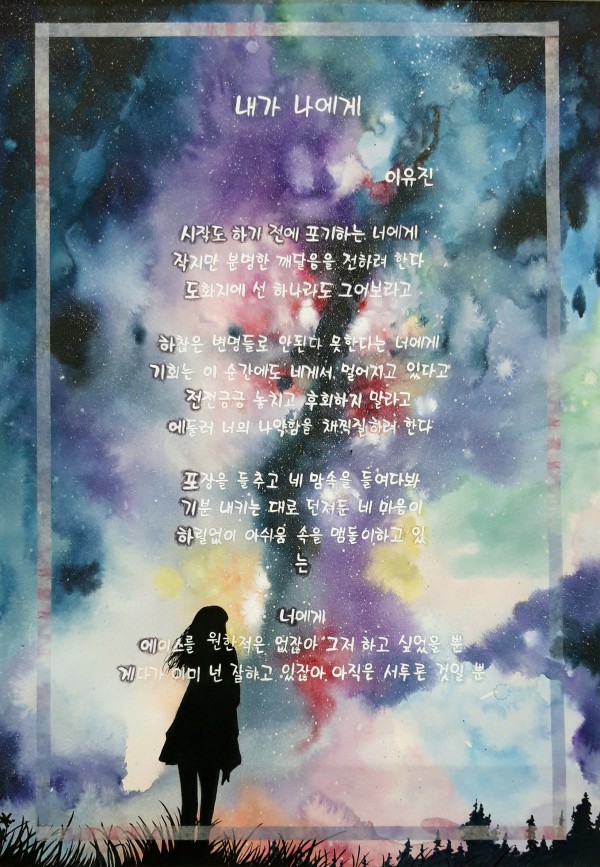 내가 나에게
이유진
시작도 하기 전에 포기하는 너에게
작지만 분명한 깨달음을 전하려 한다
도화지에 선 하나라도 그어보라고
하찮은 변명들로 안된다 못한다는 너에게
기회는 이 순간에도 네게서 멀어지고 있다고
전전긍긍 놓치고 후회하지 말라고
에둘러 너의 나약함을 채찍질하려 한다
포장을 들추고 네 맘속을 들여다봐
기분 내키는 대로 던져둔 네 마음이
하릴없이 아쉬움 속을 맴돌이하고 있
는
너에게
에이스를 원한적은 없잖아 그저 하고 싶었을 뿐
게다가 이미 넌 잘하고 있잖아 아직은 서투른 것일 뿐